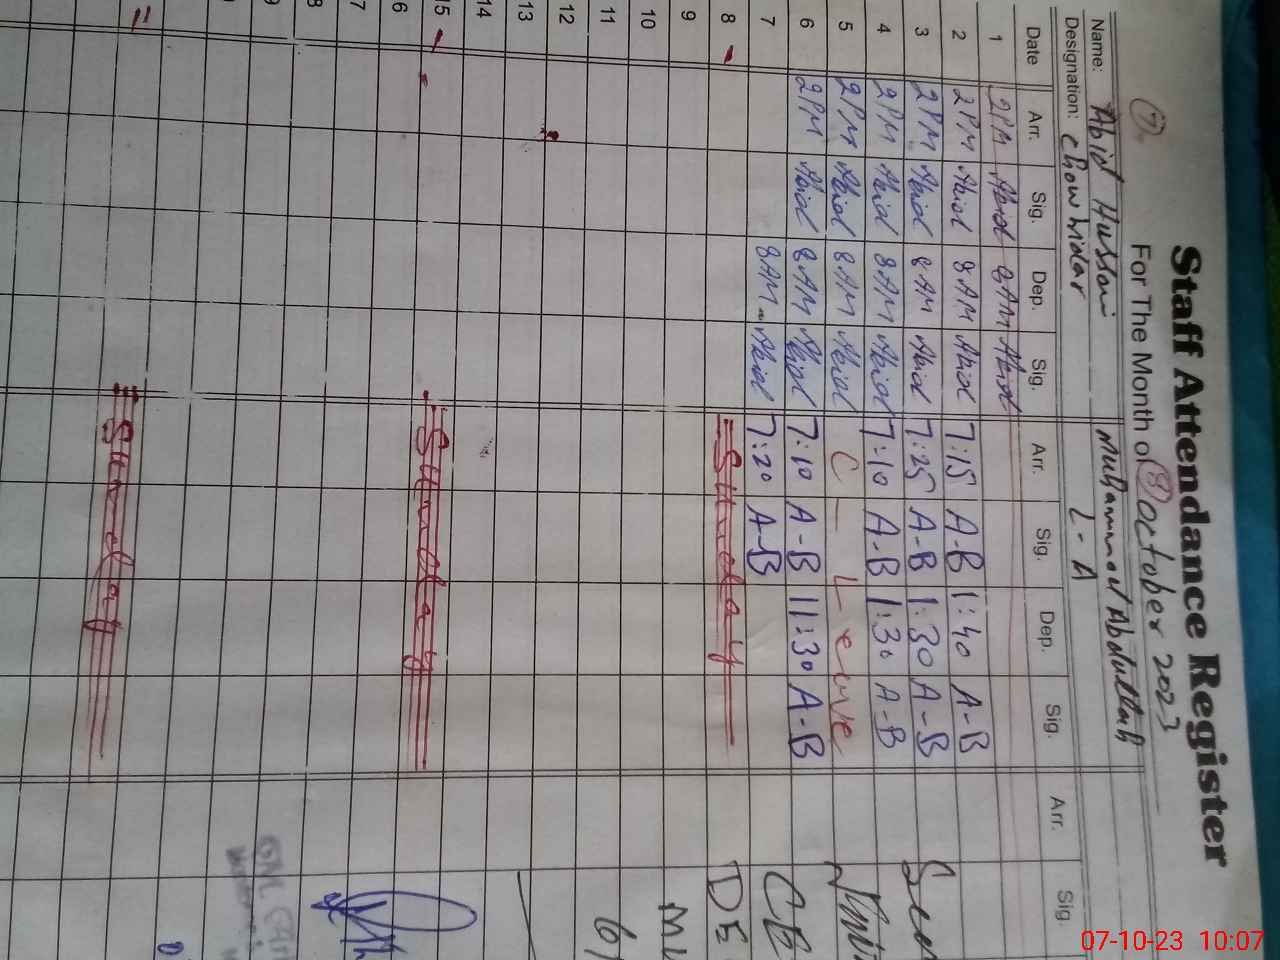 Staff Attendance Register
For The Month of October 2023
7
8
Name: Abid Hussain Muhammad Abdullah
Designation: chowkidar L-A
Date Arr. Sig. Dep. Sig. Arr. Sig. Dep. Sig. Arr. Sig
1 2PM Abid 8AM Abid
2 2PM Abid 8AM Abid 7:15 A-B 1:40 A-B
3 2PM Abid 8AM Abid 7:25 A-B 1:30 A-B
4 2PM Abid 8AM Abid 7:10 A-B 1:30 A-B
5 2PM Abid 8AM Abid C - Leave
6 2PM Abid 8AM Abid 7:10 A-B 11:30 A-B
7 8AM Abid 7:20 A-B
8 Sunday
9
10
11
12
13
14
15 Sunday
6
7
8
9
Sunday
07-10-23 10:07